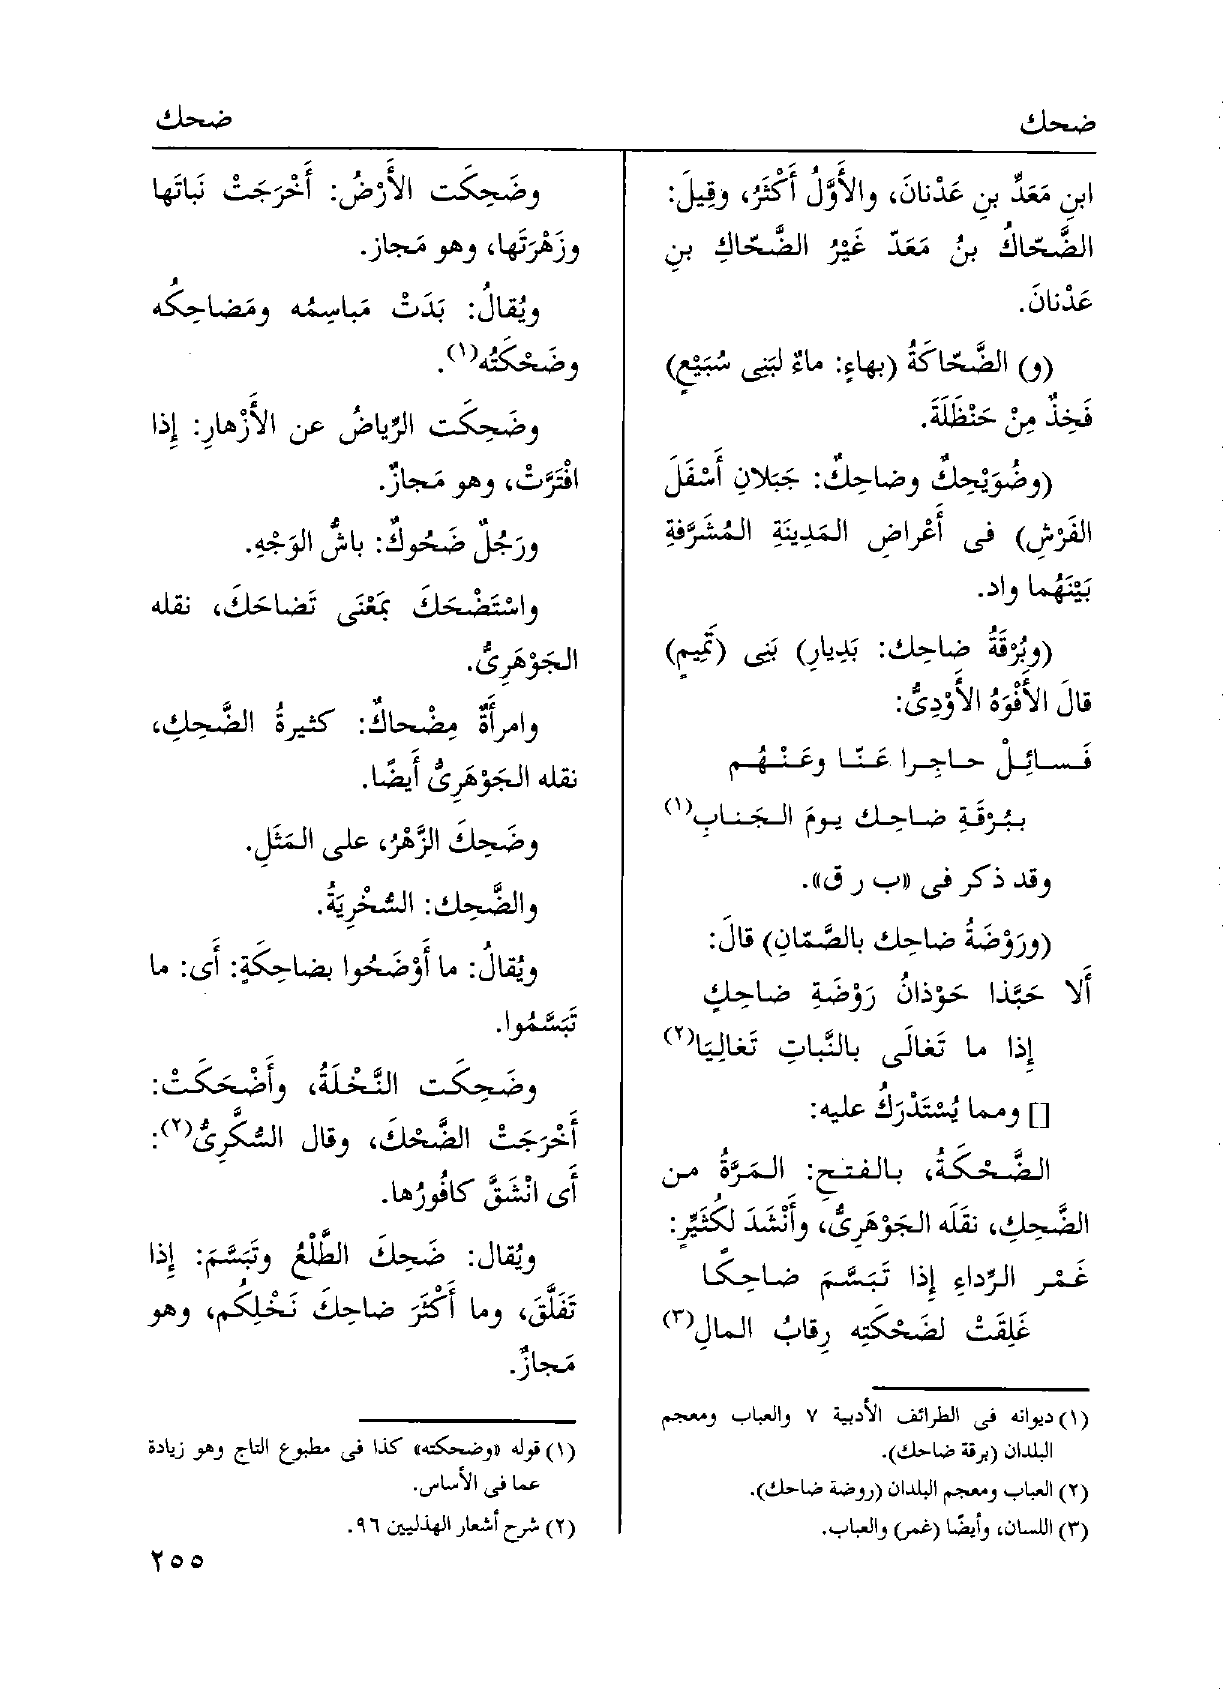 ضحك
ضحك
ابنِ مَعَدٍّ بنِ عَدْنانَ، والأَوَّلُ أَكْثَرُ، وقِيلَ:
الضَّحّاكُ بنُ مَعَدّ غَيْرُ الضَّحّاكِ بنِ
عَدْنانَ.
(و) الضَّحّاكَةُ (بهاءٍ: ماءٌ لبَنِى سُبَيْعٍ)
فَخِذٌ مِنْ حَنْظَلَةَ.
(وضُوَيْحِكٌ وضاحِكٌ: جَبَلانِ أَسْفَلَ
الفَرْشِ) فى أَعْراضِ المَدِينَةِ المُشَرَّفةِ
بَيْنَهُما واد.
(وبُرْقَةُ ضاحِك: بَدِيارِ) بَنِى (تَمِيمٍ)
قالَ الأَفْوَهُ الأَوْدِىُّ:
فَسائِلْ حاجِرا عَنّا وعَنْهُم
ببُرْقَةِ ضاحِك يومَ الجَنابِ(١)
وقد ذكر فى «ب ر ق».
(ورَوْضَةُ ضاحِك بالصَّمّانِ) قالَ:
أَلا حَبَّذا حَوْذانُ رَوْضَةِ ضاحِكٍ
إِذا ما تَغالَى بالنَّباتِ تَغالِيَا(٢)
[] ومما يُسْتَدْرَكُ عليه:
الضَّحْكَةُ، بالفتحِ: المَرَّةُ من
الضَّحِكِ، نقَلَه الجَوْهَرِىُّ، وأَنْشَدَ لكُثَيِّرٍ:
غَمْر الرِّداءِ إِذا تَبَسَّمَ ضاحِكًا
غَلِقَتْ لضَحْكَتِه رِقابُ المالِ(٣)
(١) ديوانه فى الطرائف الأدبية ٧ والعباب ومعجم
البلدان (برقة ضاحك).
(٢) العباب ومعجم البلدان (روضة ضاحك).
(٣) اللسان، وأيضًا (غمر) والعباب.
وضَحِكَت الأَرْضُ: أَخْرَجَتْ نَباتَها
وزَهْرَتَها، وهو مَجاز.
ويُقالُ: بَدَتْ مَباسِمُه ومَضاحِكُه
وضَحْكَتُه(١).
وضَحِكَت الرِّياضُ عن الأَزْهارِ: إِذا
افْتَرَّتْ، وهو مَجازٌ.
ورَجُلٌ ضَحُوكٌ: باشُّ الوَجْهِ.
واسْتَضْحَكَ بَمعْنَى تَضاحَكَ، نقله
الجَوْهَرِىُّ.
وامرأَةٌ مِضْحاكٌ: كثيرةُ الضَّحِكِ،
نقله الجَوْهَرِىُّ أَيضًا.
وضَحِكَ الزَّهْرُ، على المَثَلِ.
والضَّحِك: السُّخْرِيَةُ.
ويُقالُ: ما أَوْضَحُوا بضاحِكَةٍ: أَى: ما
تَبَسَّمُوا.
وضَحِكَت النَّخْلَةُ، وأَضْحَكَتْ:
أَخْرَجَتْ الضَّحْكَ، وقال السُّكَّرِىُّ(٢):
أَى انْشَقَّ كافُورُها.
ويُقال: ضَحِكَ الطَّلْعُ وتَبَسَّمَ: إِذا
تَفَلَّقَ، وما أَكْثَرَ ضاحِكَ نَخْلِكُم، وهو
مَجازٌ.
(١) قوله «وضحكته» كذا فى مطبوع التاج وهو زيادة
عما فى الأساس.
(٢) شرح أشعار الهذليين ٩٦.
٢٥٥